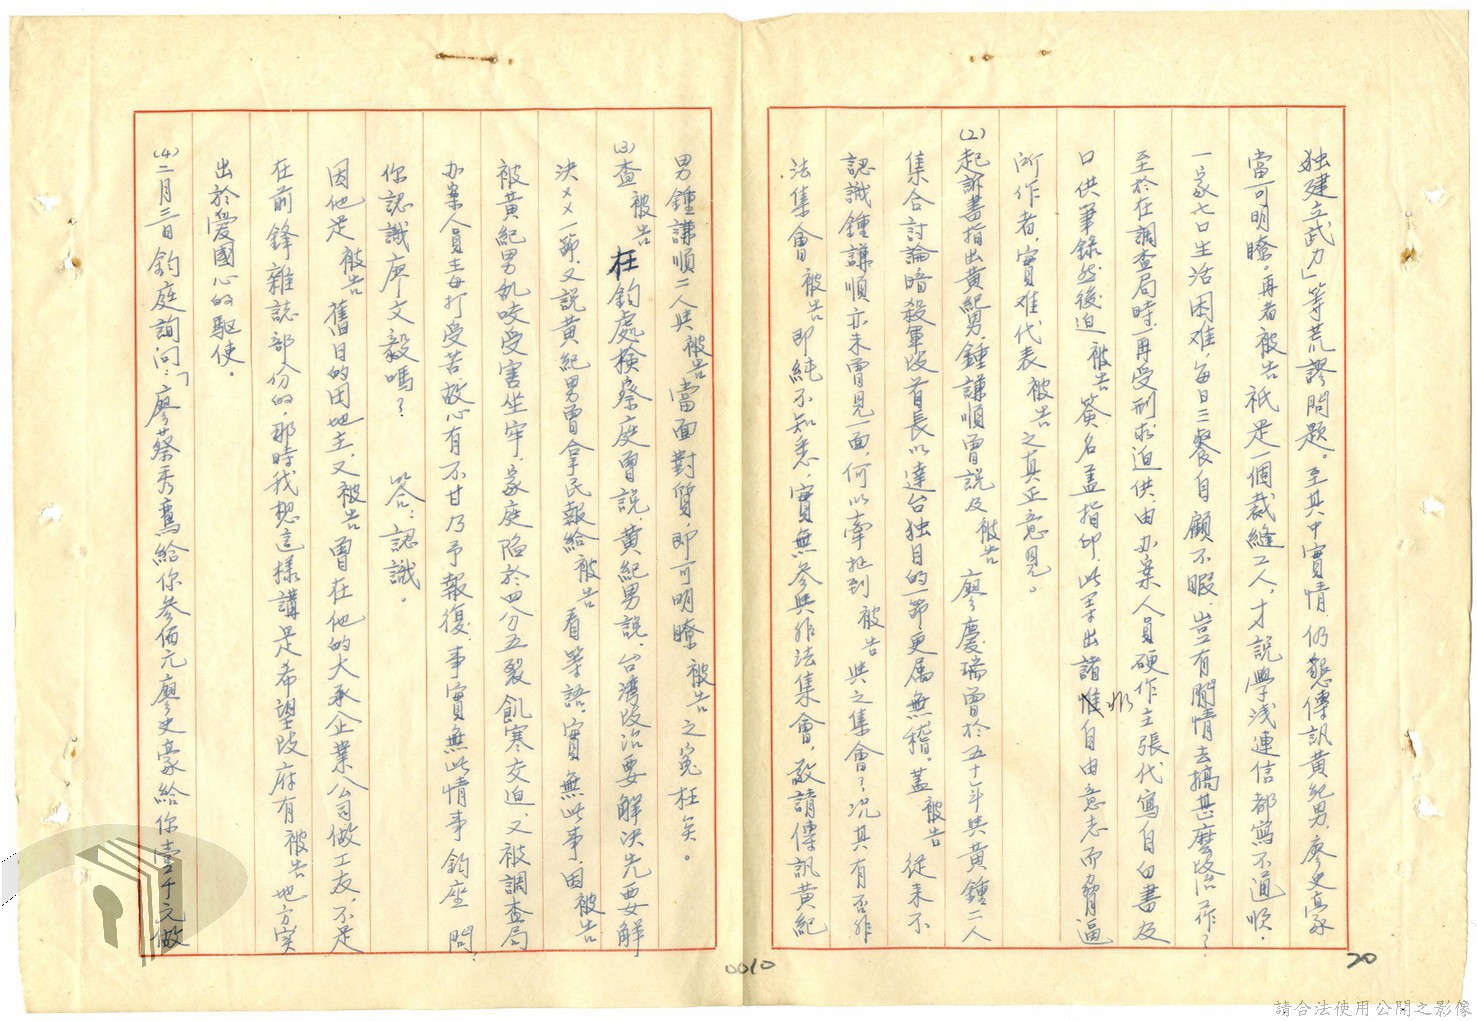 独建立武力」等荒謬問題。至其中實情,仍懇傳訊黃紀男、廖史豪
當可明瞭,再者被告祇是一個裁縫工人,才說學淺連信都寫不通順,
一家七口生活困难,每日三餐自顧不暇,豈有閒情去搞甚麼政治工作?
至於在調查局時,再受刑求迫供,由办案人員硬作主張代寫自白書及
口供筆錄然後迫被告簽名盖指印,此呈出諸非自由意志而脅逼
所作者,實难代表被告之真正意見。
(2)起訴書指出黃紀男,鍾謙順曾說及被告 廖慶瑞曾於五十年與黃鍾二人
集合討論暗殺軍政首長以達台独目的一節更属無稽。蓋被告 從來不
認識鍾謙順亦未曾見一面,何以牽扯到被告 與之集會?況其有否非
法集會被告即純不知悉,實無參與非法集會,敢請傳訊黃紀
男鍾謙順二人與被告當面對質,即可明瞭被告之冤枉矣。
(3)查被告 在鈞處檢察庭曾說,黃紀男說,台灣政治要解決先要解
決××一節,又說黃紀男曾拿民報給被告看等語,實無此事,因被告
被黃紀男乱咬受害坐牢,家庭陷於四分五裂飢寒交迫,又被調查局
办案人員毒打受苦故心有不甘乃予報復,事實無此情事鈞座問:
你認識廖文毅嗎? 答:認識。
因他是被告舊日的田地主,又被告曾在他的大承企業公司做工友,不是
在前鋒雜誌部份的,那時我想這樣講是希望政府有被告地方實
出於愛國心的驅使。
(4)二月三日鈞庭詢问:「廖蔡秀鸞給你參佰元廖史豪給你壹千元做
0010
20
請合法使用公開之影像